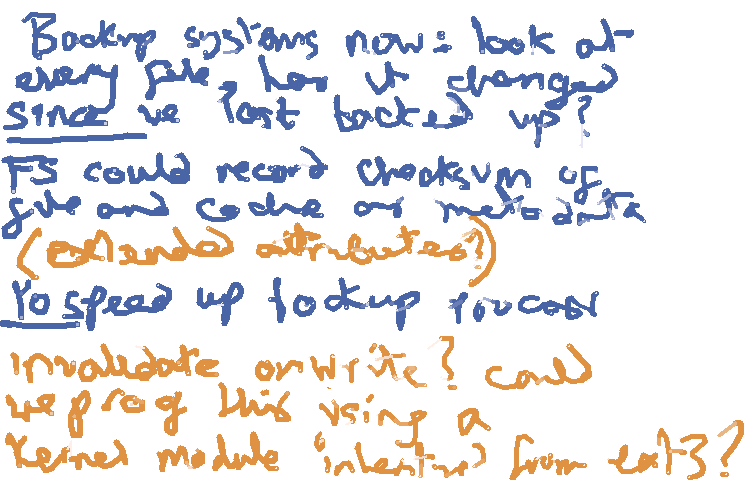 Backup systems now: look at
every file, has it changed
since we last backed up?
FS could record checksum of
file and cache as metadata
(extended attributes?)
To speed up backup you can
invalidate on write? could
we prog this using a
kernel module 'inherting' from ext3?